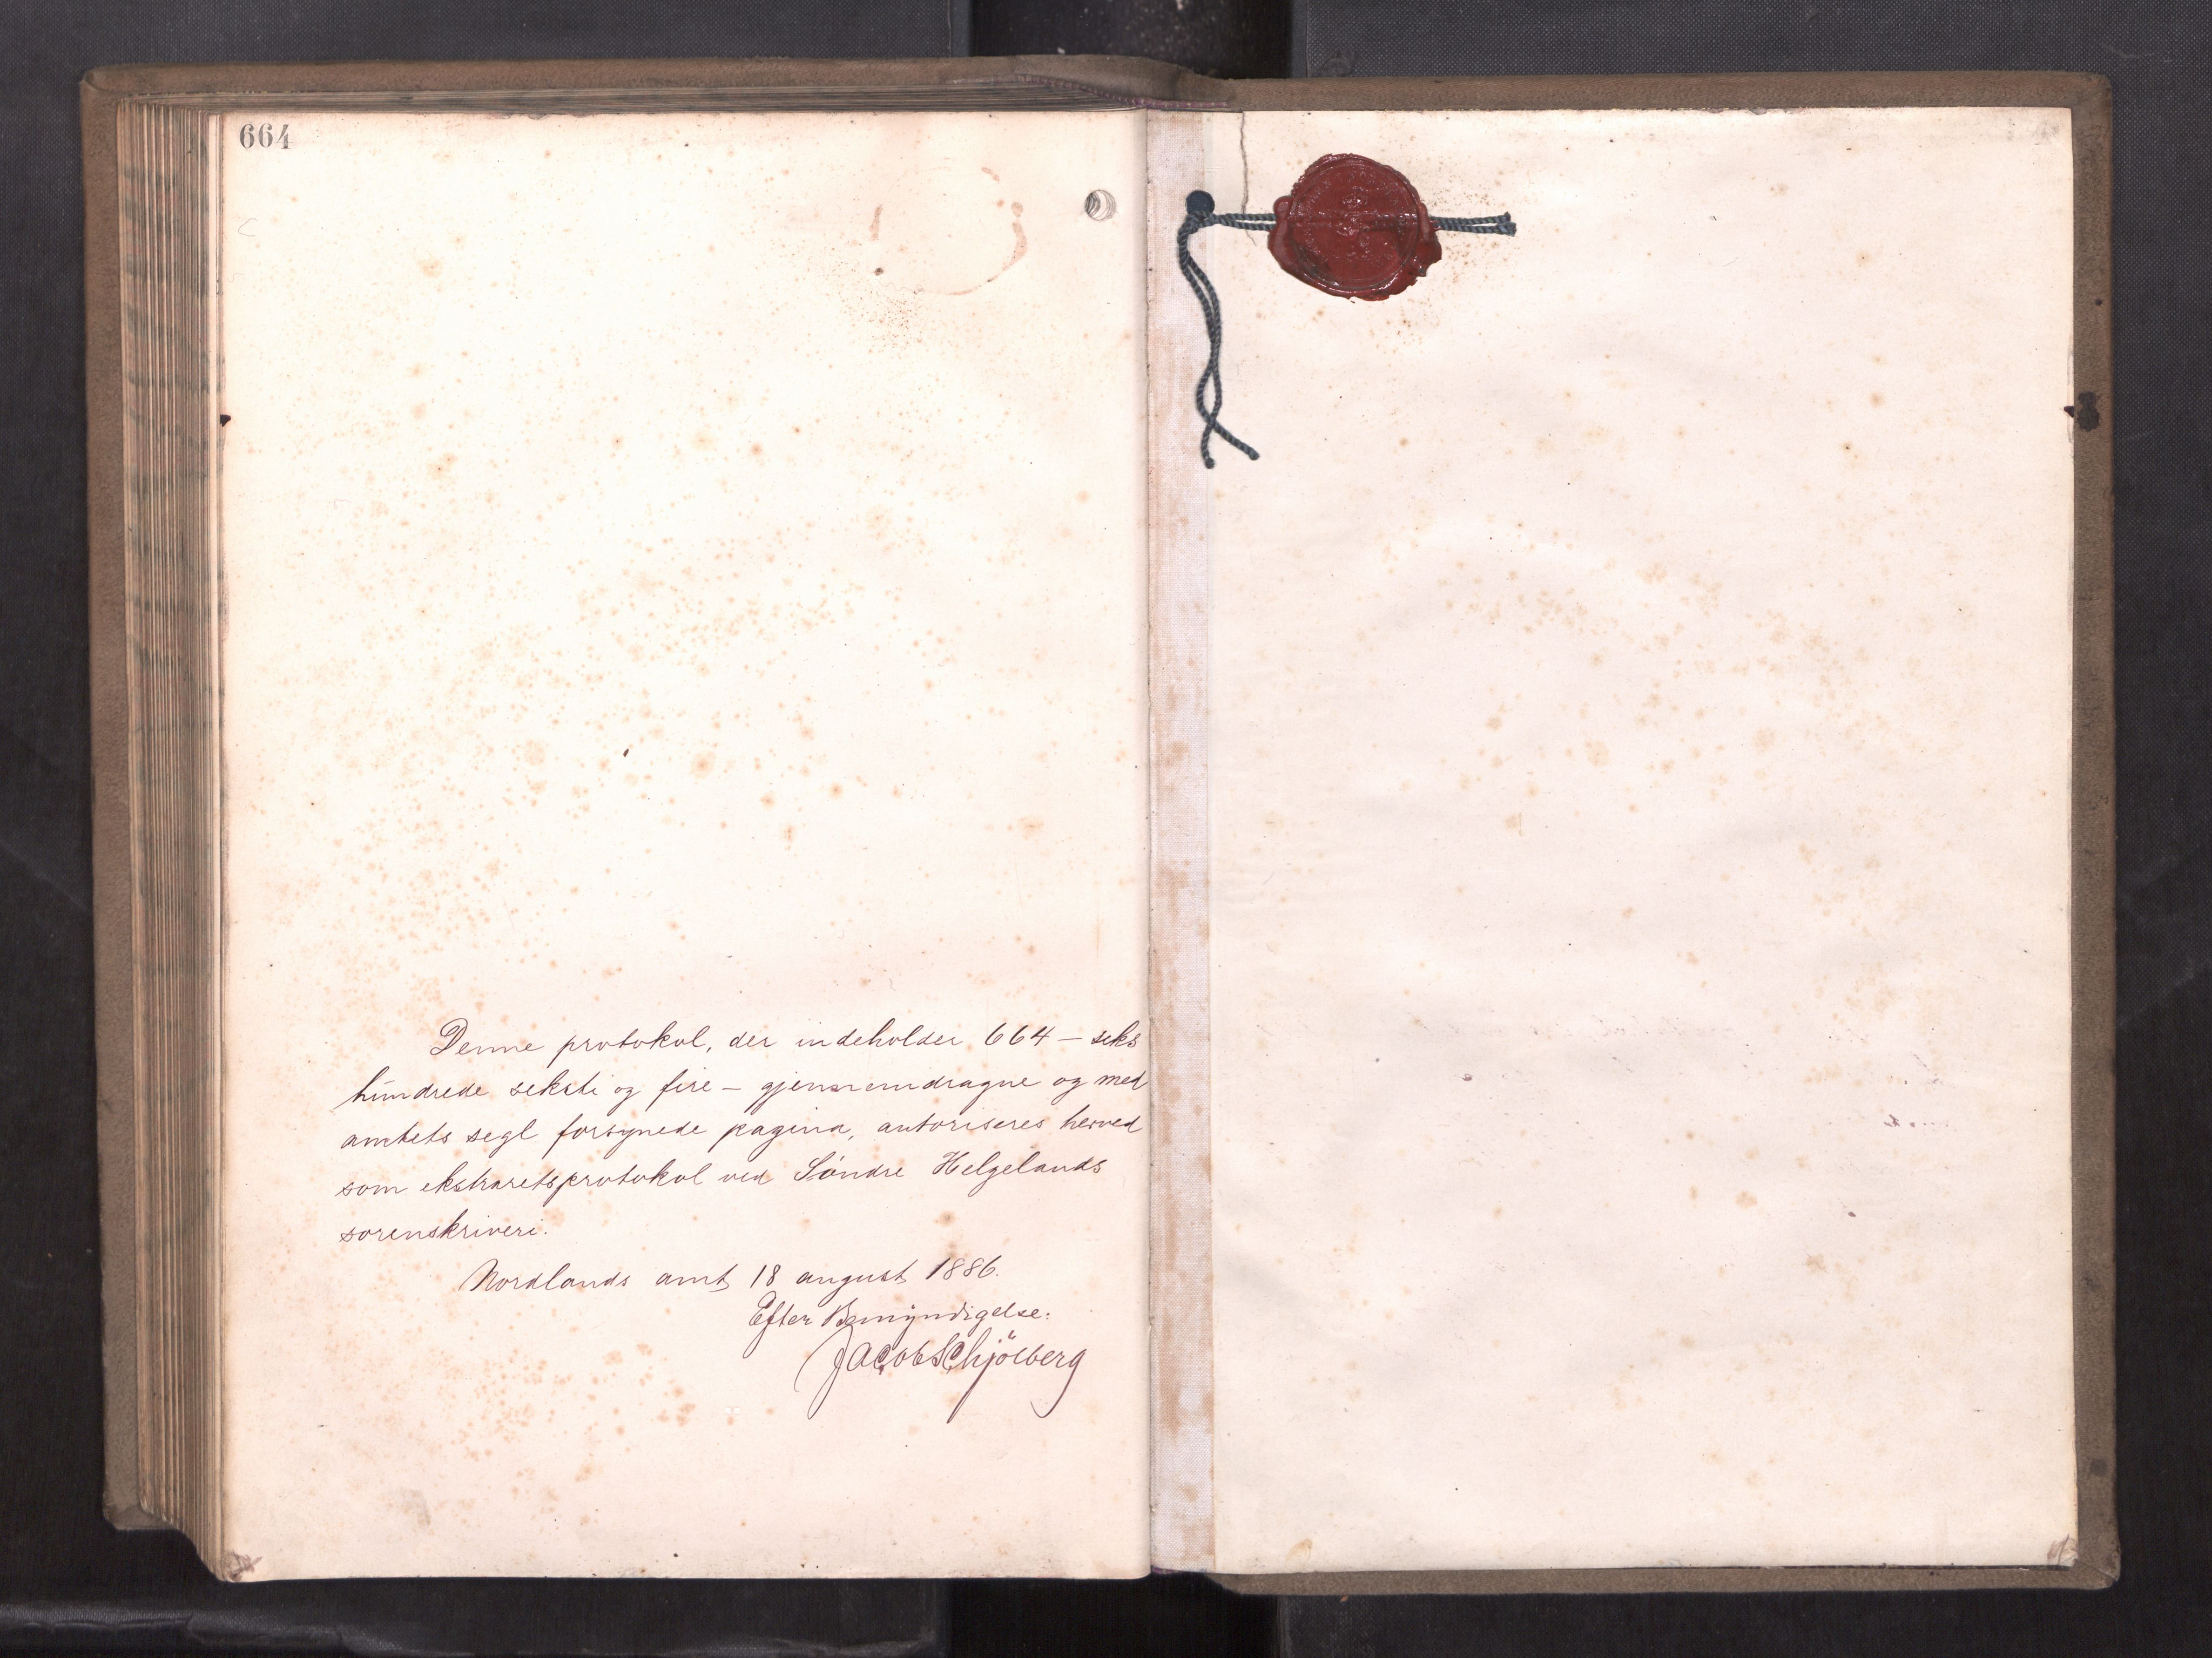 664
Denne protokol, der indeholder 664 — seks
hundrede seksti og fire — gjennemdragne og med
amtets segl forsynede pagina, autoriseres herved
som ekstraretsprotokol ved Söndre Helgelands
sorenskriveri.
Nordlands amt 18 august 1886.
Efter Bemyndigelse:
Jacob Schjölberg